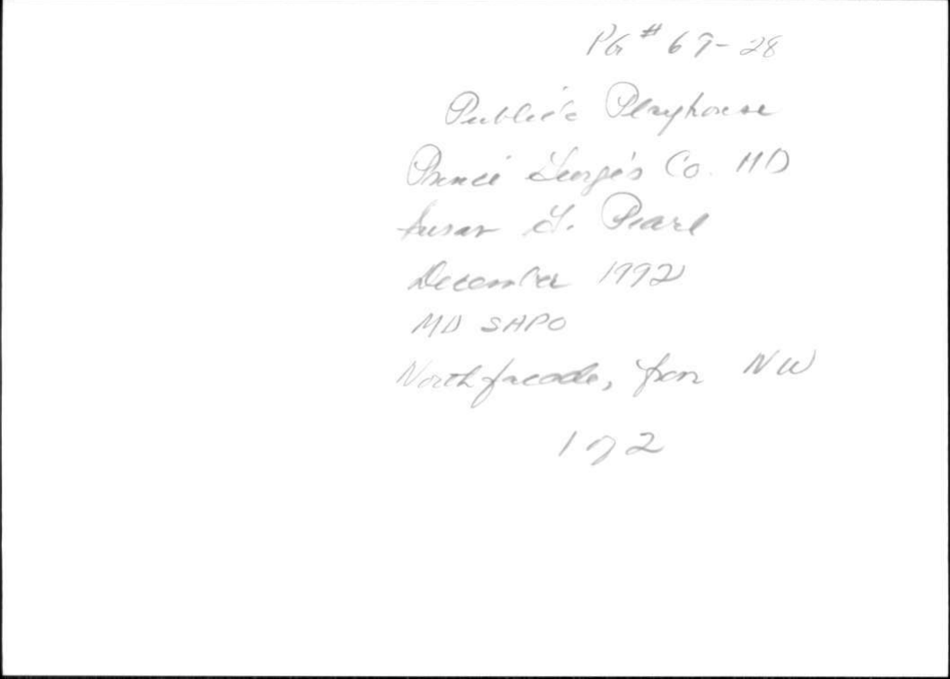 PG # 69-28
Publick Playhouse
Prince George's Co. MD
Susan G. Pearl
December 1992
MD SHPO
North facade, from NW
1 of 2